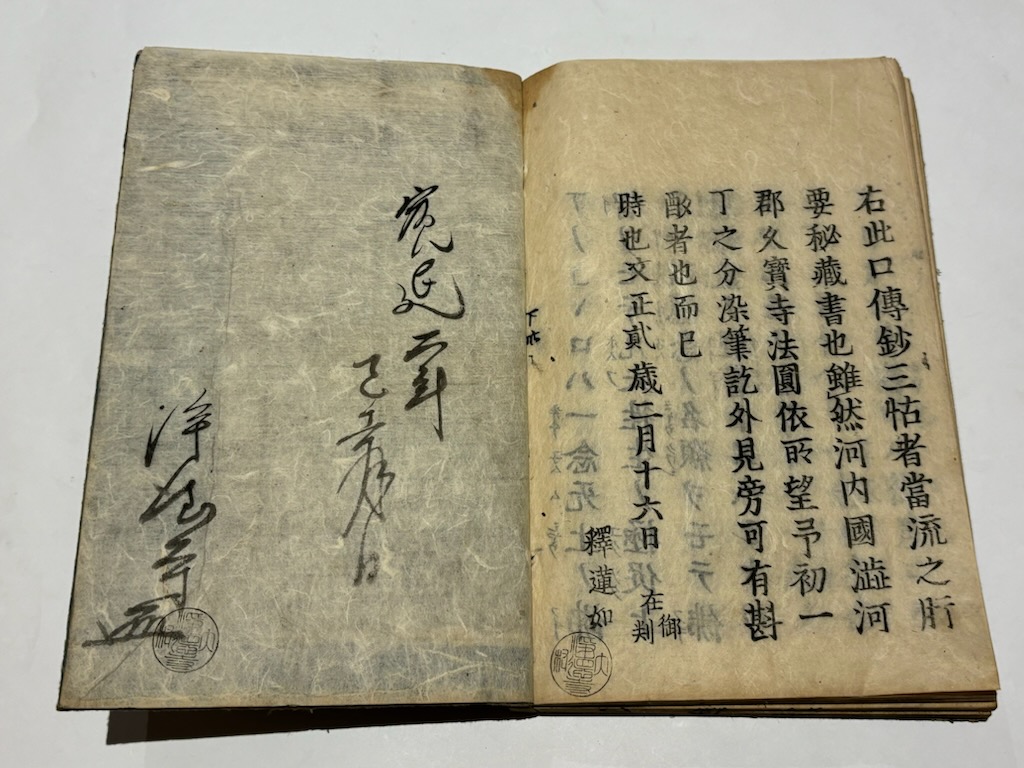 右此口傳鈔三怗者當流之肝
要秘藏書也雖然河内國澁河
郡久寶寺法圓依所望予初一
丁之分染筆訖外見旁可有斟
酌者也而已
時也文正貳歳二月十六日
釋蓮如 御在判
寛延二年
月日
浄 寺